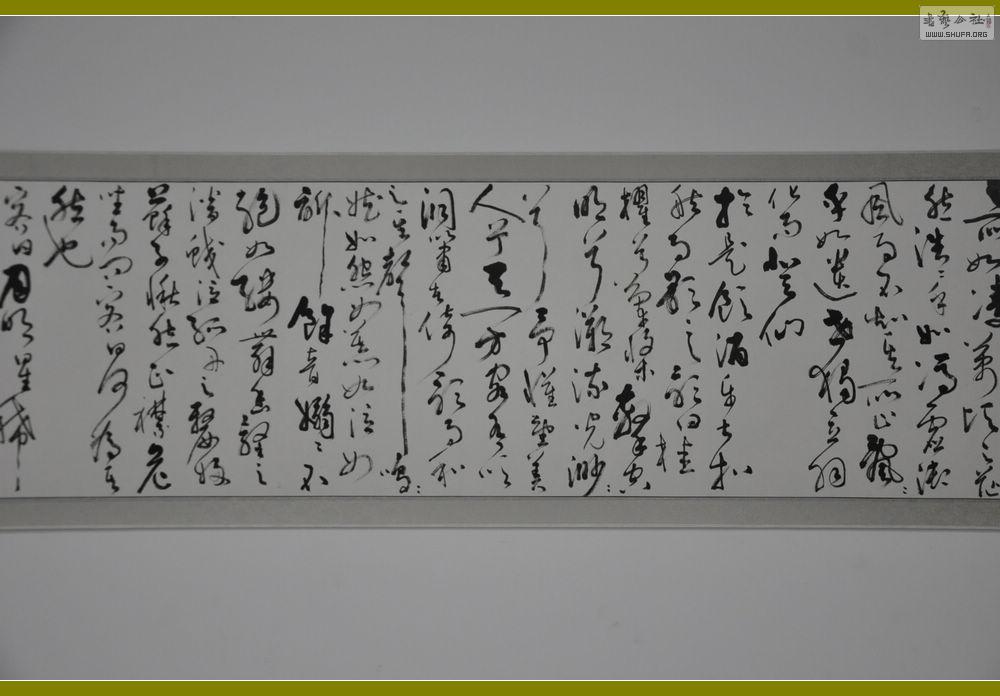 所如凌萬頃之茫
然浩浩乎如馮虛御
風而不知其所止飄飄
乎如遺世獨立羽
化而登仙
於是飲酒樂甚扣
舷而歌之歌曰桂
櫂兮蘭槳擊空
明兮溯流光渺渺
兮予懷望美
人兮天一方客有吹
洞簫者倚歌而和
之其聲嗚嗚
然如怨如慕如泣如
訴餘音嫋嫋不
絕如縷舞幽壑之
潛蛟泣孤舟之嫠婦
蘇子愀然正襟危
坐而問客曰何為其
然也
客曰月明星稀
書藝公社
WWW.SHUFA.ORG